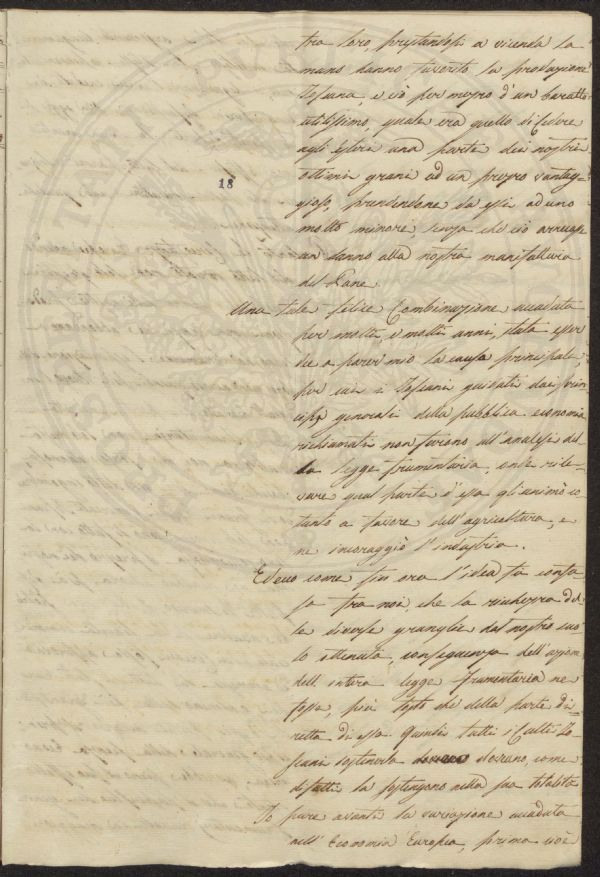 tra loro, prestandosi a vicenda la
mano hanno favorito la produzione
Toscana, e ciò per mezzo d'un baratto
utilissimo, quale era quello di cedere
agli Esteri una parte dei nostri
ottimi grani ad un prezzo vantag-
gioso, prendendone da essi ad uno
molto minore, senza che ciò arrecasse
un danno alla nostra manifattura
del Pane.
18
Una tale felice combinazione accaduta
per molti, e molti anni, stata esser
dee a parer mio la causa principale,
per cui i Toscani guidati dai prin
cipj generali della pubblica economia
richiamati non furono all'analisi del
la legge frumentaria, onde rile-
vare qual parte d'essa gli animò co-
tanto a favore dell'agricoltura, e
ne incoraggiò l'industria.
Ed ecco come fin ora l'idea fu confu
sa tra noi, che la ricchezza del
le diverse granaglie dal nostro suo
lo ottenuta, conseguenza dell'azione
dell'intera legge frumentaria ne
fosse, più tosto che della parte di
retta di essa. Quindi tutti i Culti To-
scani sostenerla dovrano, come
difatti la sostengono nella sua totalità
Io pure avanti la variazione accaduta
nell'Economia Europea, prima cioè